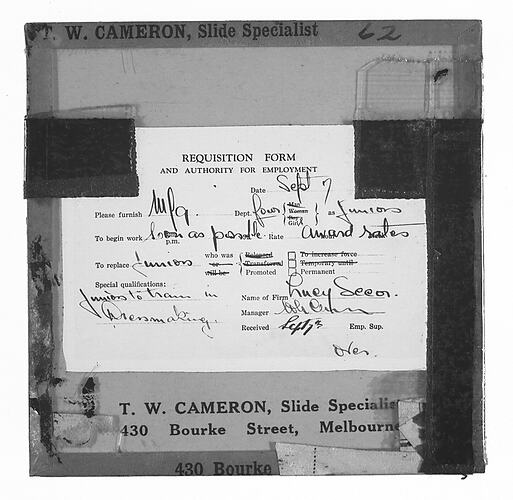 T. W. CAMERON, Slide Specialist 62
REQUISITION FORM
AND AUTHORITY FOR EMPLOYMENT
Date Sept 7
Please furnish Mfg. Dept. four Man Woman Boy Girl as Juniors
To begin work Soon as possble p.m. Rate Hour award rates
To replace Juniors who was or will be Released Transferred Promoted To increase force Temporary until Permanent
Special qualifications:
Juniors to train in
Dressmaking.
Name of Firm Lucy Secor.
Manager
Received Sept 7th Emp. Sup.
Over.
T. W. CAMERON, Slide Specialis
430 Bourke Street, Melbourne
430 Bourke